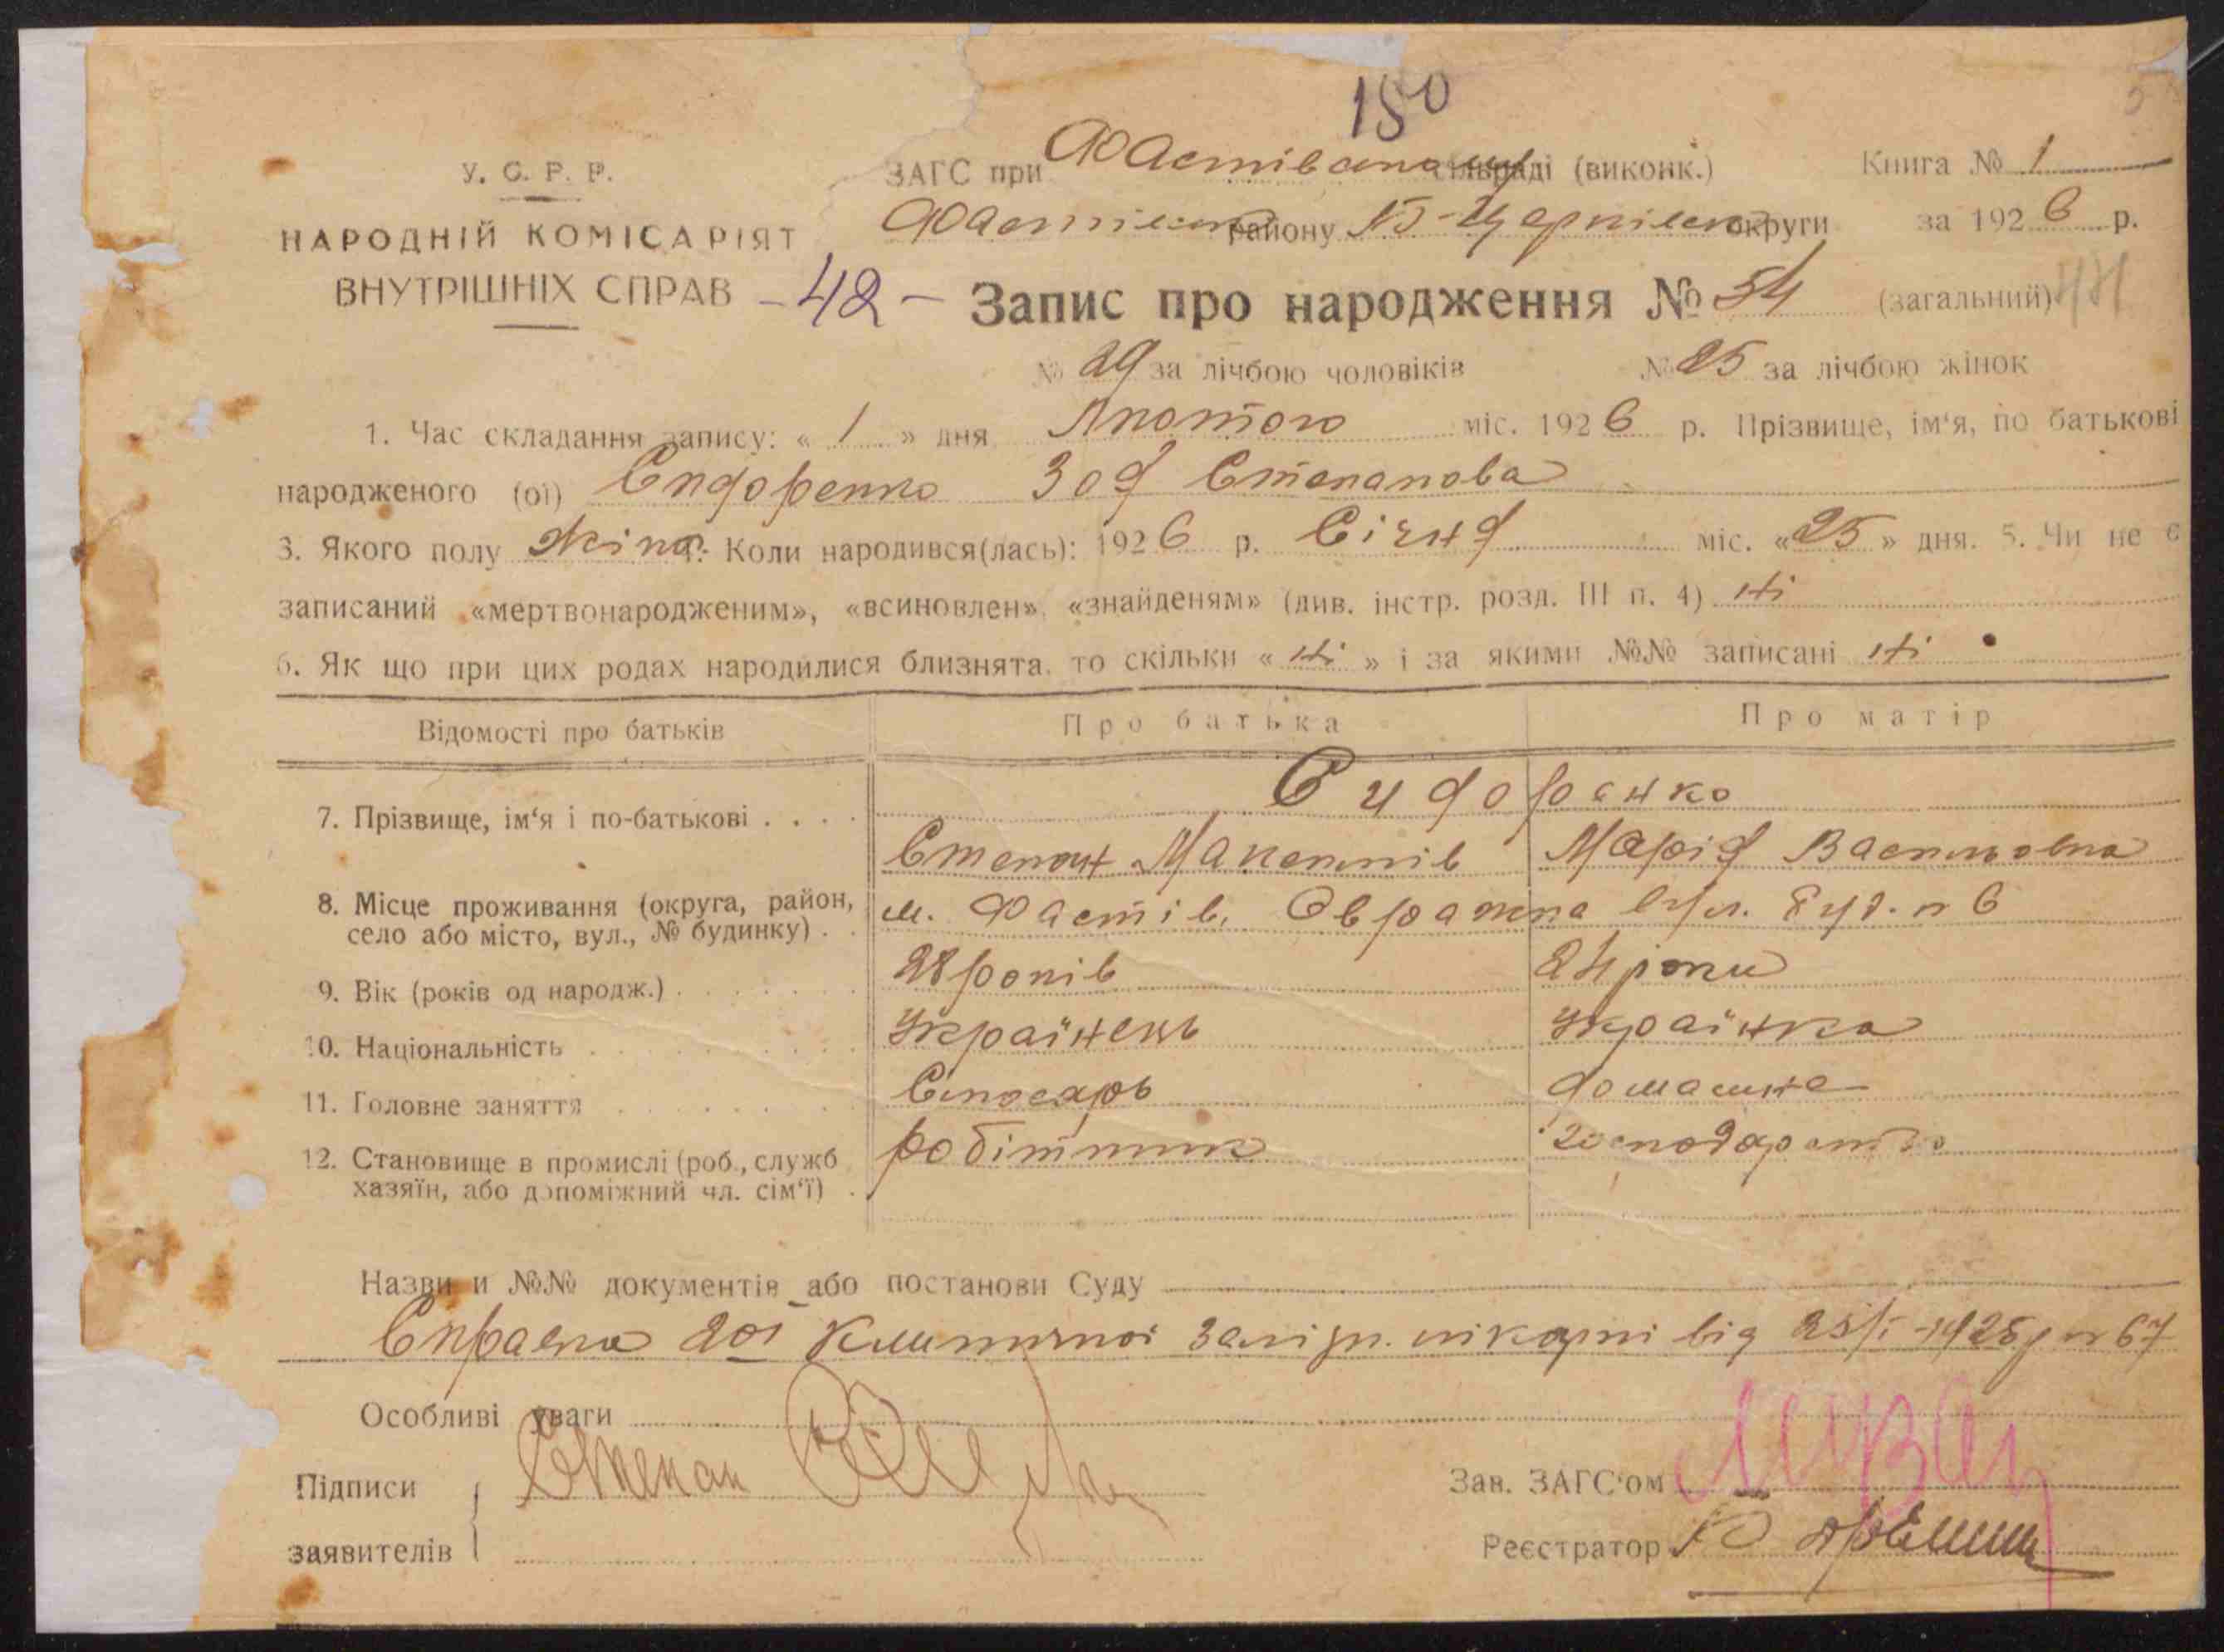 150
У. С. Р. Р.
НАРОДНІЙ КОМІСАРІЯТ
ВНУТРІШНІХ СПРАВ
ЗАГС при Фастівському сільраді (виконк.)
Книга № 1
Фастівськ району Б-Церківськ округи
за 1926 р.
- 42 -
Запис про народження № 54 (загальний)
№ 29 за лічбою чоловіків № 25 за лічбою жінок
1. Час складання запису: « 1 » дня Лютого міс. 1926 р. Прізвище, ім‘я, по батькові
народженого (ої) Сидоренко Зоя Степанова
3. Якого полу жіно. Коли народився(лась): 1926 р. Січня міс. «25» дня. 5. Чи не є
записаний «мертвонародженим», «всиновлен», «знайденям» (див. інстр. розд. III п. 4) ні
6. Як що при цих родах народилися близнята, то скільки « ні » і за якими №№ записані ні
Відомості про батьків Про батька Про матір
7. Прізвище, ім‘я і по-батькові
Сидоренко
Степан Макетнів Марія Васильовна
8. Місце проживання (округа, район, село або місто, вул., № будинку)
м. Фастів, Овражна вул. буд. № 6
9. Вік (років од народж.) 28 років 24 роки
10. Національність Українець Українка
11. Головне заняття Слюсарь домашнє
12. Становище в промислі (роб., служб хазяїн, або допоміжний чл. сім‘ї) робітник господарство
Назви и №№ документів або постанови Суду
Справка 2ої Клинічної залізн. лікарні від 25/I-1926 р № 67
Особливі уваги
Підписи
заявителів
Степан
Зав. ЗАГС‘ом
Реєстратор